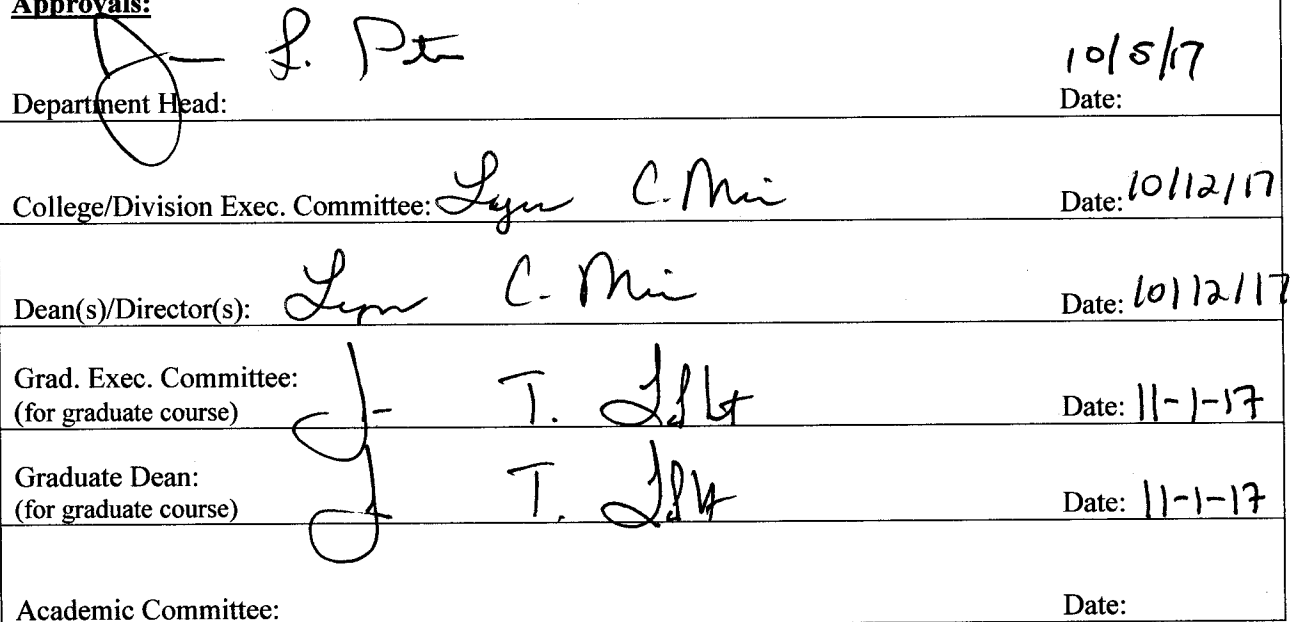 Approvals:
L. 10/5/17
Department Head: Date:
College/Division Exec. Committee: C. Date: 10/12/17
Dean(s)/Director(s): C. Date: 10/12/17
Grad. Exec. Committee:
(for graduate course) T. Date: 11-1-17
Graduate Dean:
(for graduate course) T. Date: 11-1-17
Academic Committee: Date: